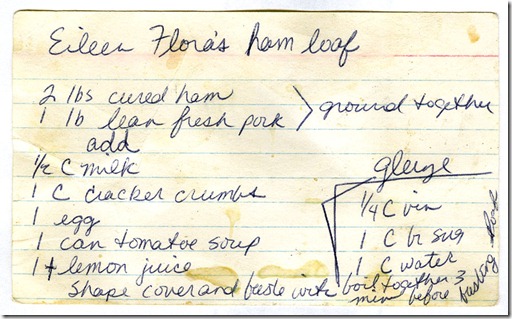 Eileen Flora's ham loaf
2 lbs cured ham
1 lb lean fresh pork
ground together
add
1/2 C milk
1 C cracker crumbs
1 egg
1 can tomatoe soup
1 t lemon juice
Shape cover and baste with
1/4 C vin
1 C br sug
1 C water
boil together 3
min before basting